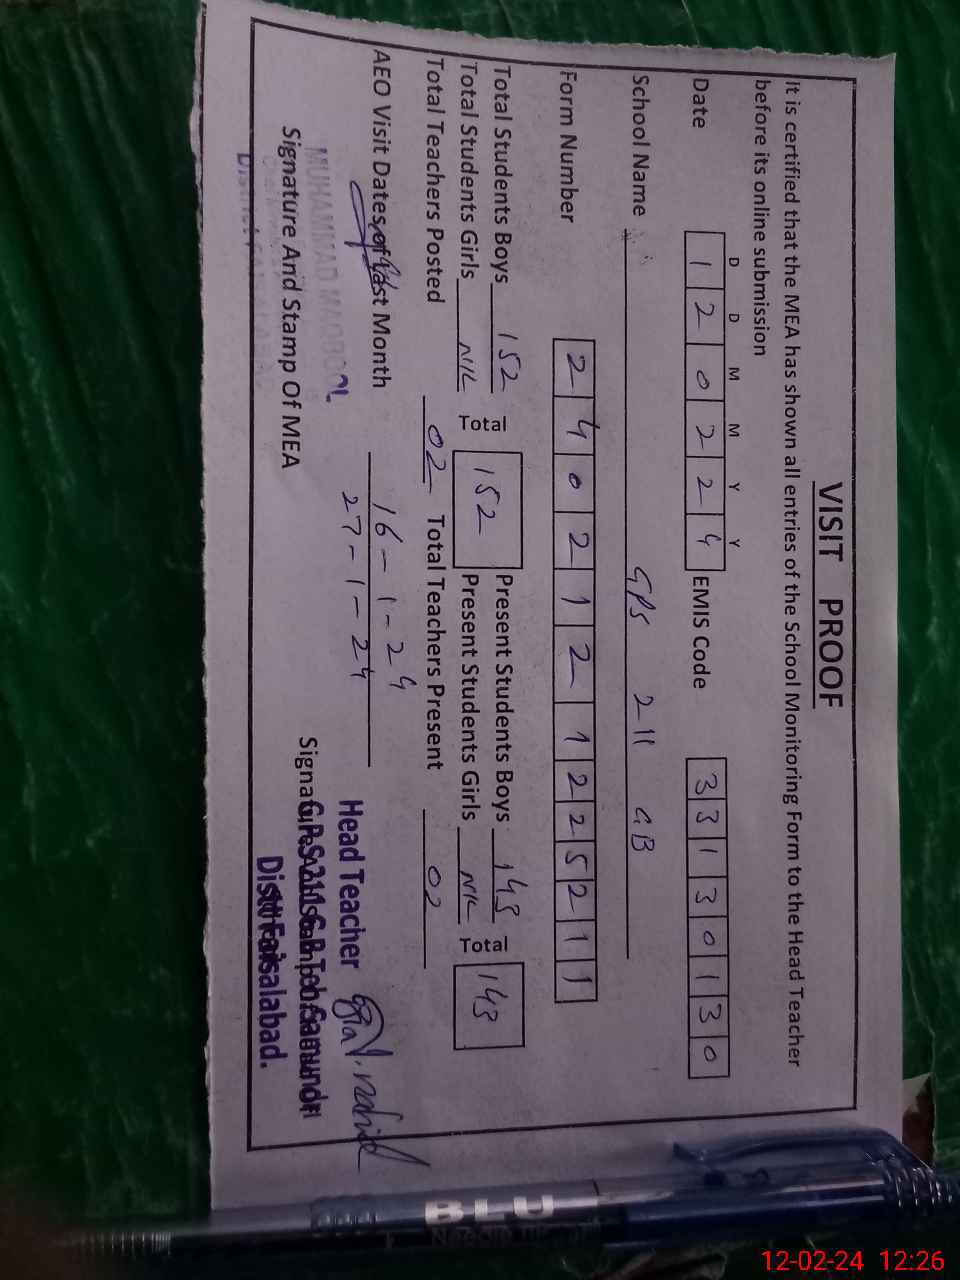 VISIT PROOF
It is certified that the MEA has shown all entries of the School Monitoring Form to the Head Teacher
before its online submission
D D M M Y Y
Date 1 2 0 2 2 4 EMIS Code 3 3 1 3 0 1 3 0
School Name GPS 211 GB
Form Number 2 4 0 2 1 2 1 2 2 5 2 1 1
Total Students Boys 152 Total 152 Present Students Boys 143 Total 143
Total Students Girls NIL Present Students Girls NIL
Total Teachers Posted 02 Total Teachers Present 02
AEO Visit Dates of Last Month 16-1-24
27-1-24
MUHAMMAD MAQBOOL
Signature And Stamp Of MEA
Head Teacher
G.P.S 211 G.B Teh Samundri
Distt Faisalabad.
BLU
Needle
12-02-24 12:26